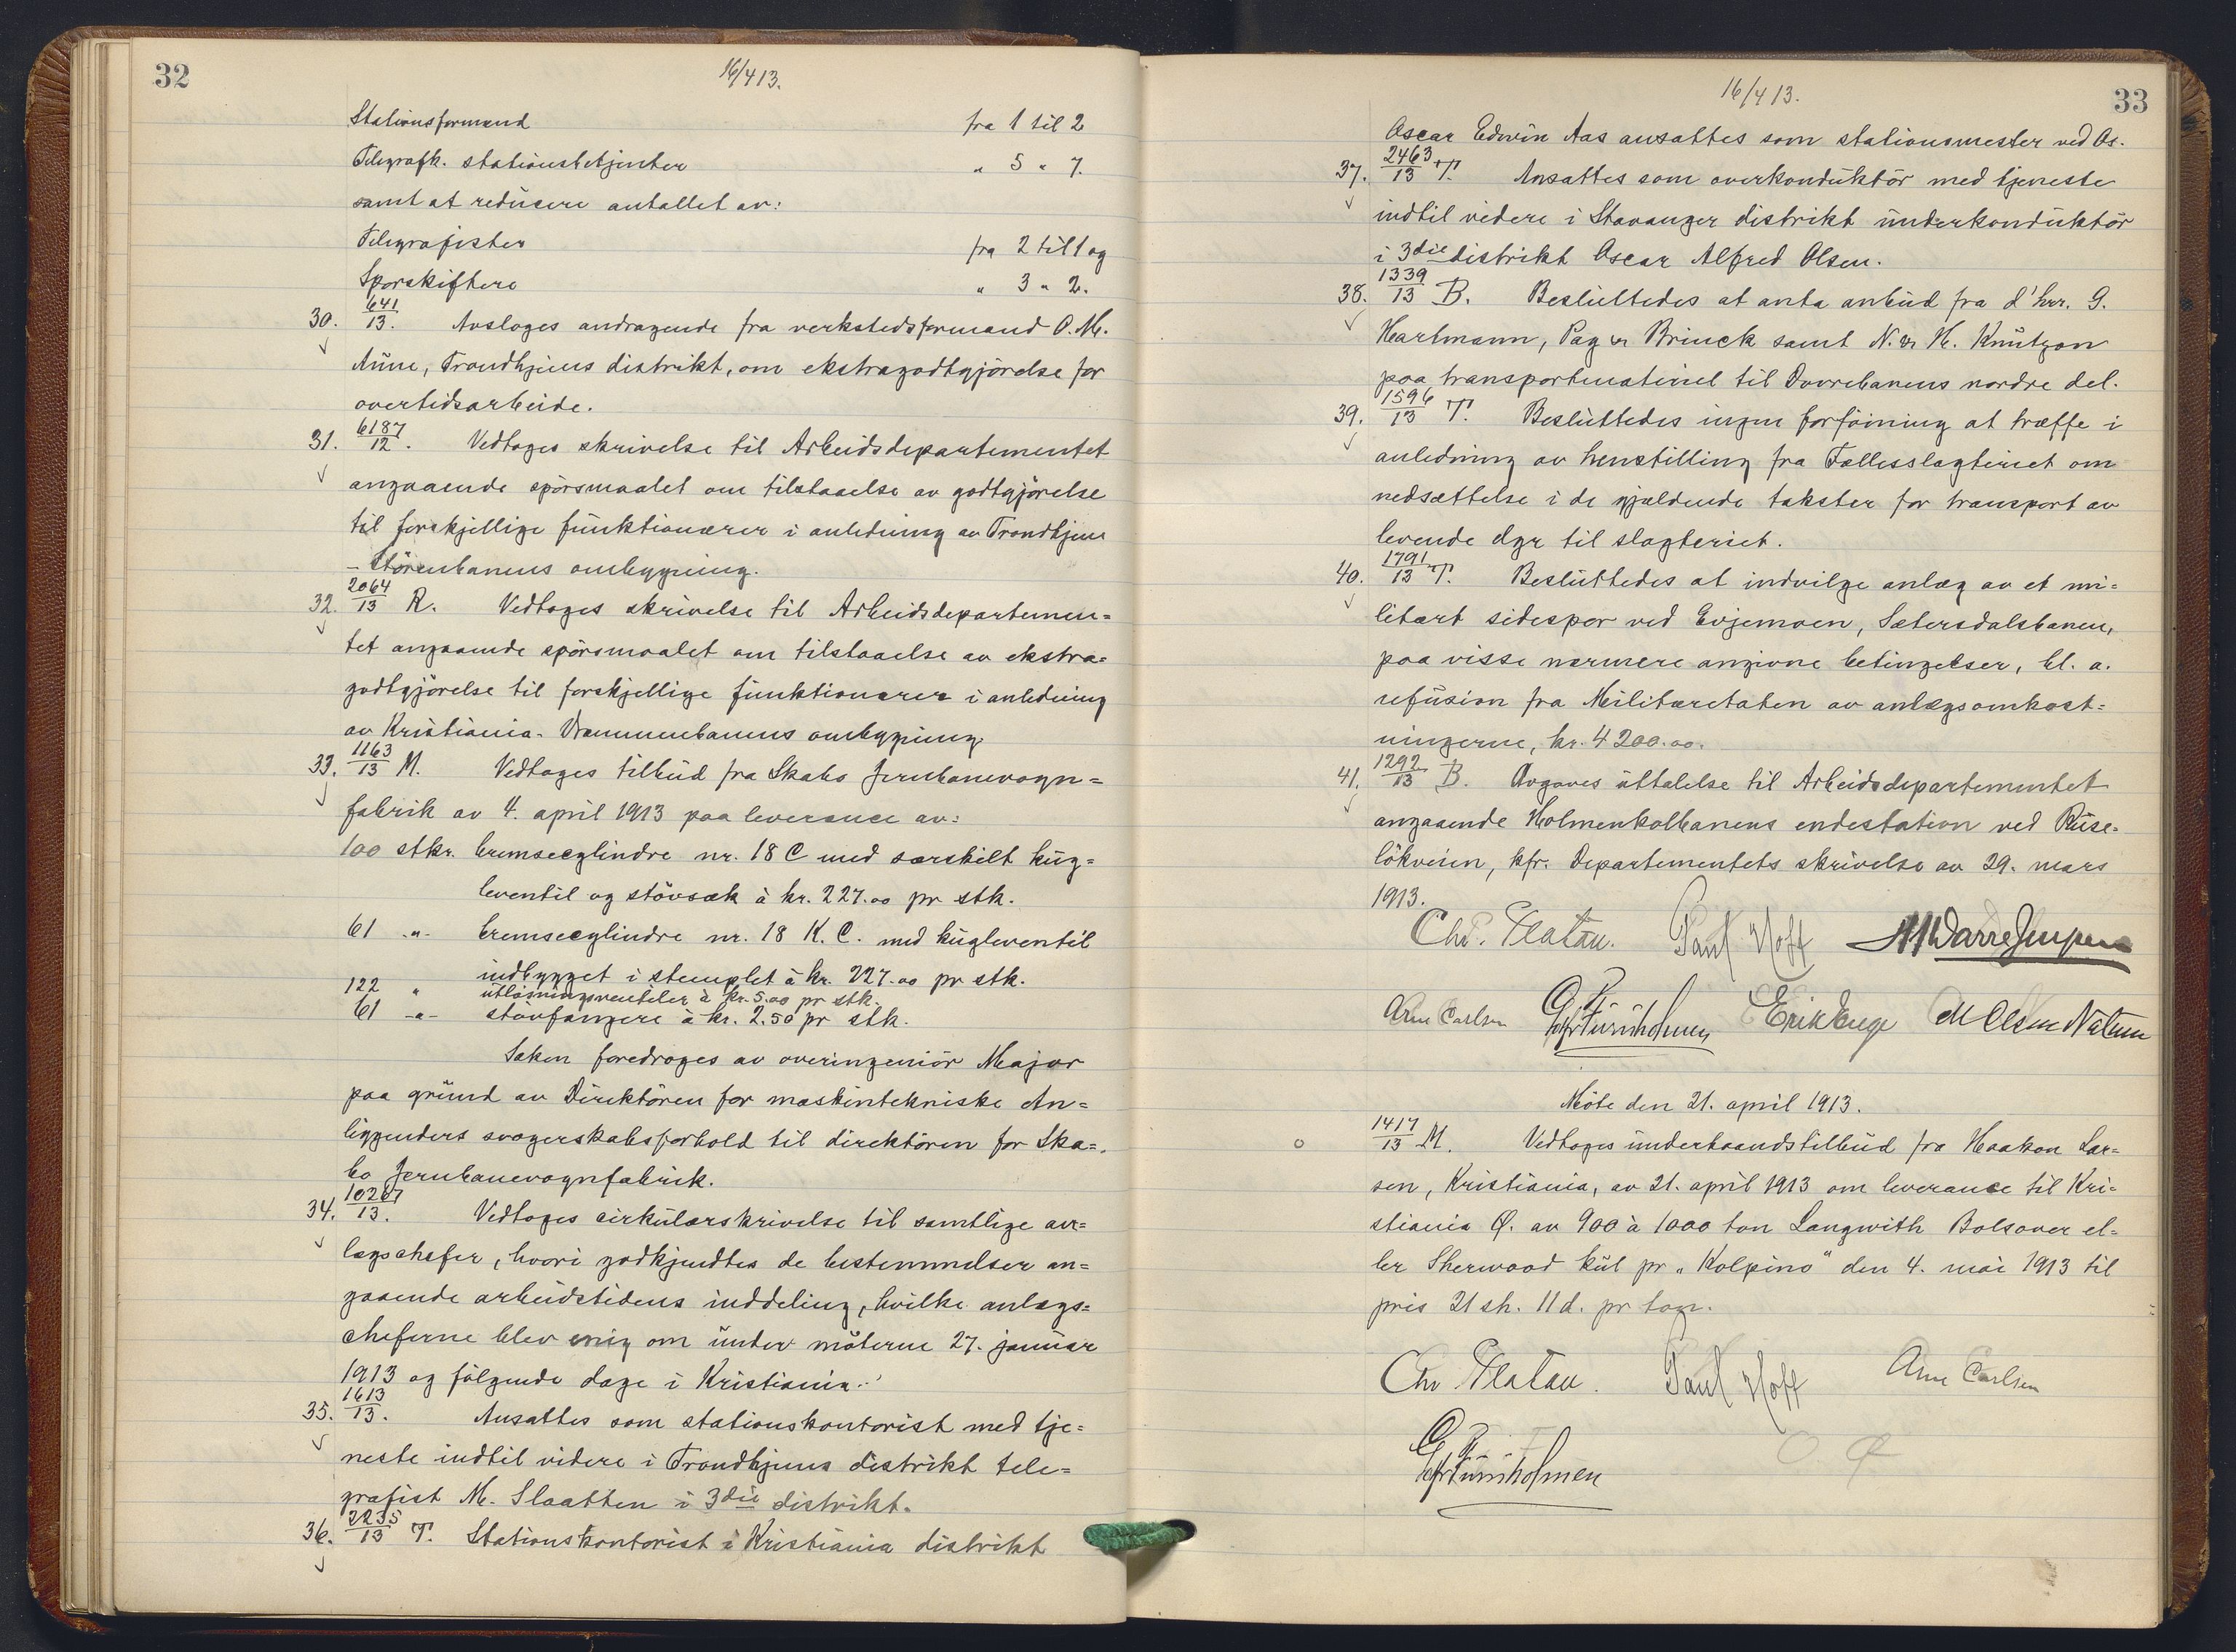 32
16/4 13.
Stationsformænd fra 1 til 2
Telegrafk. stationsbetjenter " 5 " 7.
samt at redusere antallet av:
Telegrafister fra 2 til 1 og
Sporskiftere " 3 " 2.
30. 641/13. Avsloges andragende fra verkstedsformand O. M.
Aune, Trondhjems distrikt, om ekstragodtgjörelse for
overtidsarbeide.
31. 6187/12. Vedtoges skrivelse til Arbeidsdepartementet
angaaende spörsmaalet om tilstaaelse av godtgjörelse
til forskjellige funktionærer i anledning av Trondhjem
- Störenbanens ombygning.
32. 2064/13 R. Vedtoges skrivelse til Arbeidsdepartemen=
tet angaaende spörsmaalet om tilstaaelse av ekstra=
godtgjörelse til forskjellige funktionærer i anledning
av Kristiania-Drammenbanens ombygning
33. 1163/13 M. Vedtoges tilbud fra Skabo Jernbanevogn=
fabrik av 4. april 1913 paa leverance av:
100 stkr. bremsecylindre nr. 18 C med særskilt kug=
leventil og stövsæk à kr. 227.00 pr stk.
61 -"- bremsecylindre nr. 18 K. C. med kugleventil
indbygget i stemplet à kr. 227.00 pr stk.
122 " utlösningsventiler à kr. 5.00 pr stk.
61 -"- stövfangere à kr. 2.50 pr stk.
Saken foredroges av overingeniör Major
paa grund av Direktören for maskintekniske An=
liggenders svogerskabsforhold til direktören for Ska=
bo Jernbanevognfabrik.
34. 10267/13. Vedtoges cirkulærskrivelse til samtlige an=
lægschefer, hvori godkjendtes de bestemmelser an=
gaaende arbeidstidens inddeling, hvilke anlægs=
cheferne blev enig om under möterne 27. januar
1913 og fölgende dage i Kristiania.
35. 1613/13. Ansattes som stationskontorist med tje=
neste indtil videre i Trondhjems distrikt tele=
grafist M. Slaatten i 3die distrikt.
36. 2235/13 T. Stationskontorist i Kristiania distrikt
16/4 13.
33
Oscar Edwin Aas ansattes som stationsmester ved Os.
37. 2463/13 T. Ansattes som overkonduktör med tjeneste
indtil videre i Stavanger distrikt underkonduktör
i 3die distrikt Oscar Alfred Olsen.
38. 1339/13 B. Besluttedes at anta anbud fra d'hrr. G.
Hartmann, Pay & Brinck samt N. & H. Knutzon
paa transportmateriel til Dovrebanens nordre del.
39. 1596/13 T. Besluttedes ingen forföining at træffe i
anledning av henstilling fra Fællesslagteriet om
nedsættelse i de gjældende takster for transport av
levende dyr til slagteriet.
40. 1791/13 T. Besluttedes at indvilge anlæg av et mi=
litært sidespor ved Evjemoen, Sætersdalsbanen,
paa visse nærmere angivne betingelser, bl. a.
refusion fra Militæretaten av anlægsomkost=
ningerne, kr. 4200.00.
41. 1292/13 B. Avgaves uttalelse til Arbeidsdepartementet
angaaende Holmenkolbanens endestation ved Ruse=
lökveien, kfr. Departementets skrivelse av 29. mars
1913.
Chr. Platou. Paul Hoff
Arne Carlsen Erik Enge
Möte den 21. april 1913.
1417/13 M. Vedtoges underhaandstilbud fra Haakon Lar=
sen, Kristiania, av 21. april 1913 om leverance til Kri=
stiania Ø. av 900 à 1000 ton Langwith Bolsover el=
ler Sherwood kul pr „Kolpino" den 4. mai 1913 til
pris 21 sh. 11 d. pr ton.
Chr Platou. Paul Hoff Arne Carlsen